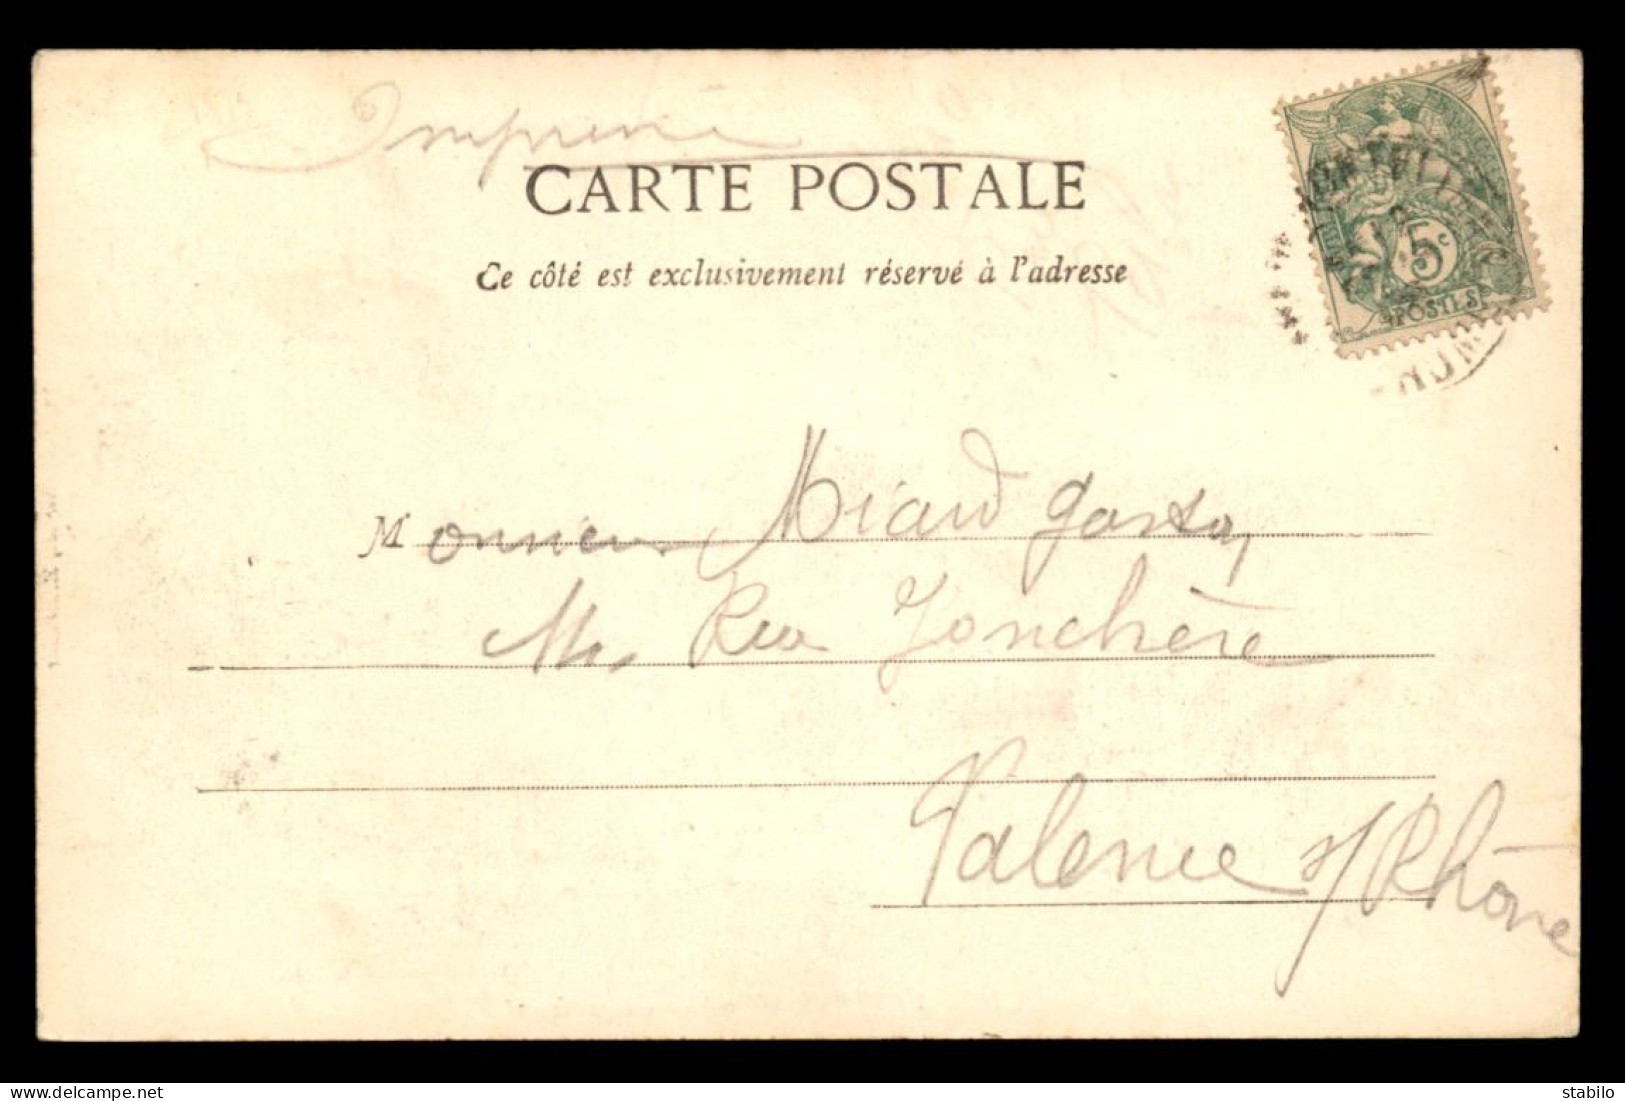 Imprimé
CARTE POSTALE
Ce côté est exclusivement réservé à l'adresse
5c
POSTES
Monsieur Miard Gaston
Rue Jonchère
Valence s/Rhône
delcampe.net
stabilo